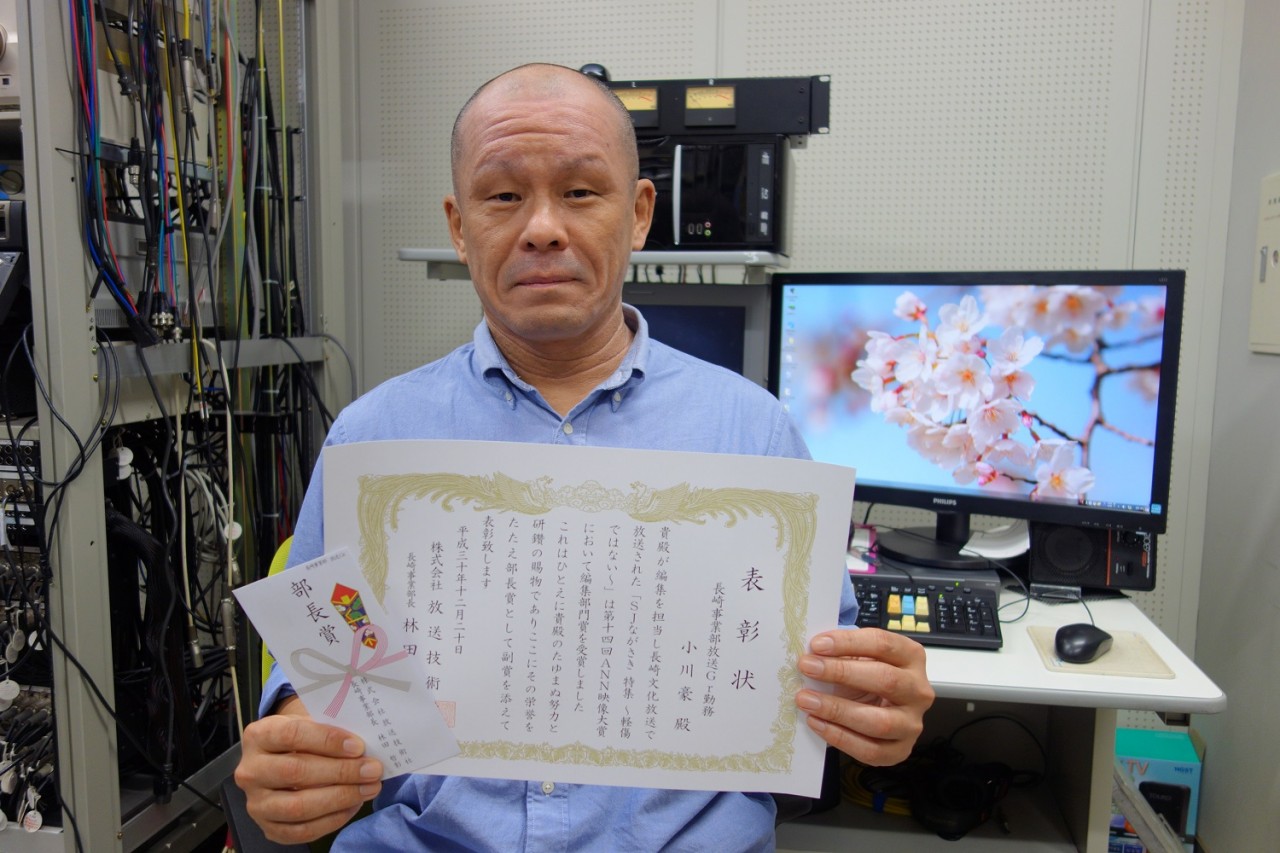 表彰状
長崎事業部放送Gr勤務
小川豪 殿
貴殿が編集を担当し長崎文化放送で
放送された「SJながさき」特集 ～軽傷
ではない～」は第十四回ANN映像大賞
において編集部門賞を受賞しました
これはひとえに貴殿のたゆまぬ努力と
研鑽の賜物でありここにその栄誉を
たたえ部長賞として副賞を添えて
表彰致します
平成三十年十二月二十日
株式会社 放送技術
長崎事業部長 林田
部長賞
株式会社放送技術社
長崎事業部長 林田
PHILIPS
TV